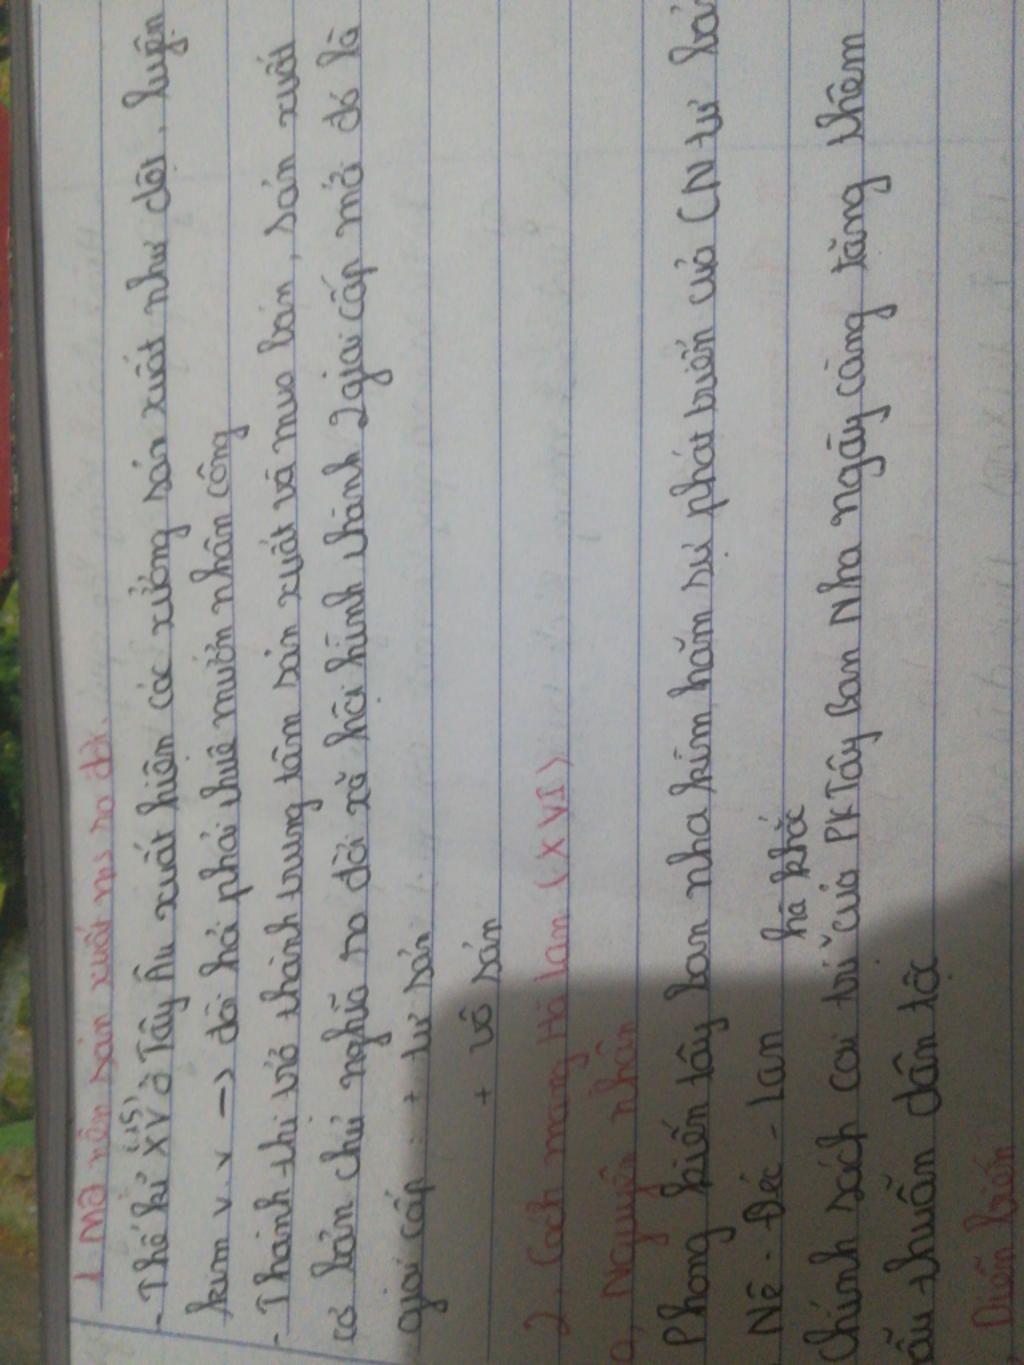 1. Một nền sản xuất ms ra đời.
- Thế kỉ XV (15) ở Tây Âu xuất hiện các xưởng sản xuất như dệt, luyện
kim v.v -> đòi hỏi phải thuê mướn nhân công
- Thành thị trở thành trung tâm sản xuất và mua bán, sản xuất
cơ bản chủ nghĩa ra đời xã hội hình thành 2 giai cấp mới đó là
giai cấp: + tư sản
+ vô sản
2. Cách mạng Hà Lan (XVI)
a, Nguyên nhân
Phong kiến tây ban nha kìm hãm sự phát triển của CN tư bản
Nê-Đéc-lan
hà khắc
Chính sách cai trị ˇ của PK Tây Ban Nha ngày càng tăng thêm
ẫu thuẫn dân tộc
Diễn biến